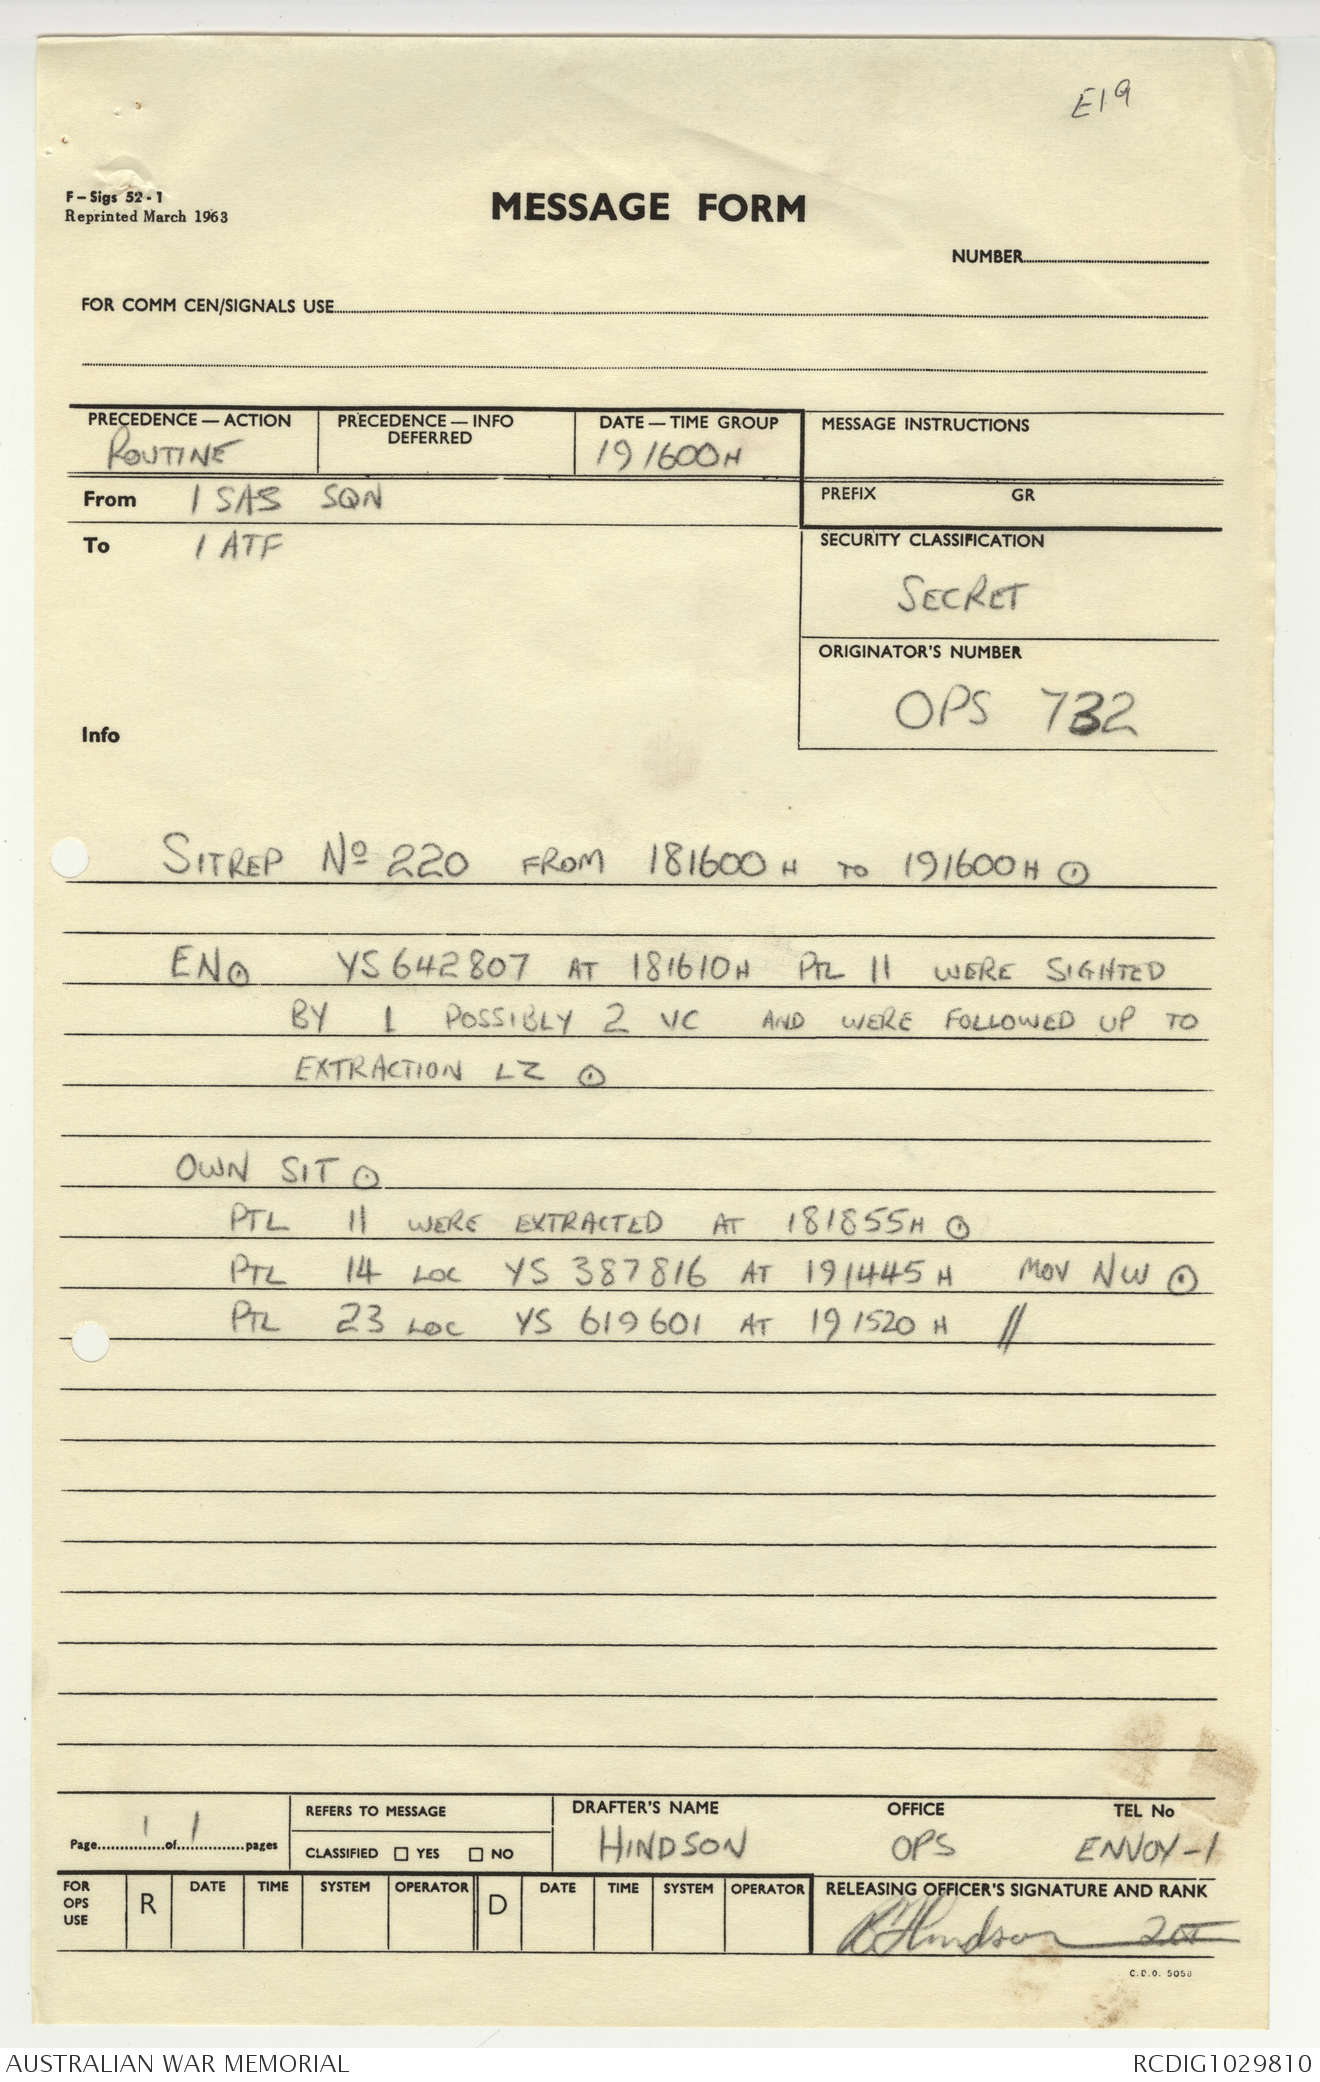 E19
F – Sigs 52 - 1
Reprinted March 1963
MESSAGE FORM
NUMBER
FOR COMM CEN/SIGNALS USE
PRECEDENCE — ACTION
ROUTINE
PRECEDENCE — INFO
DEFERRED
DATE — TIME GROUP
191600H
MESSAGE INSTRUCTIONS
From 1 SAS SQN
PREFIX GR
To 1 ATF
SECURITY CLASSIFICATION
SECRET
ORIGINATOR'S NUMBER
OPS 732
Info
SITREP Nº 220 FROM 181600H TO 191600H ⊙
EN⊙ YS642807 AT 181610H PTL 11 WERE SIGHTED
BY 1 POSSIBLY 2 VC AND WERE FOLLOWED UP TO
EXTRACTION LZ ⊙
OWN SIT ⊙
PTL 11 WERE EXTRACTED AT 181855H ⊙
PTL 14 LOC YS 387816 AT 191445H MOV NW ⊙
PTL 23 LOC YS 619601 AT 191520H //
Page 1 of 1 pages
REFERS TO MESSAGE
CLASSIFIED ☐ YES ☐ NO
DRAFTER'S NAME
HINDSON
OFFICE
OPS
TEL No
ENVOY-1
FOR
OPS
USE
R DATE TIME SYSTEM OPERATOR
D DATE TIME SYSTEM OPERATOR
RELEASING OFFICER'S SIGNATURE AND RANK
Hindson
C.D.O. 5058
AUSTRALIAN WAR MEMORIAL
RCDIG1029810